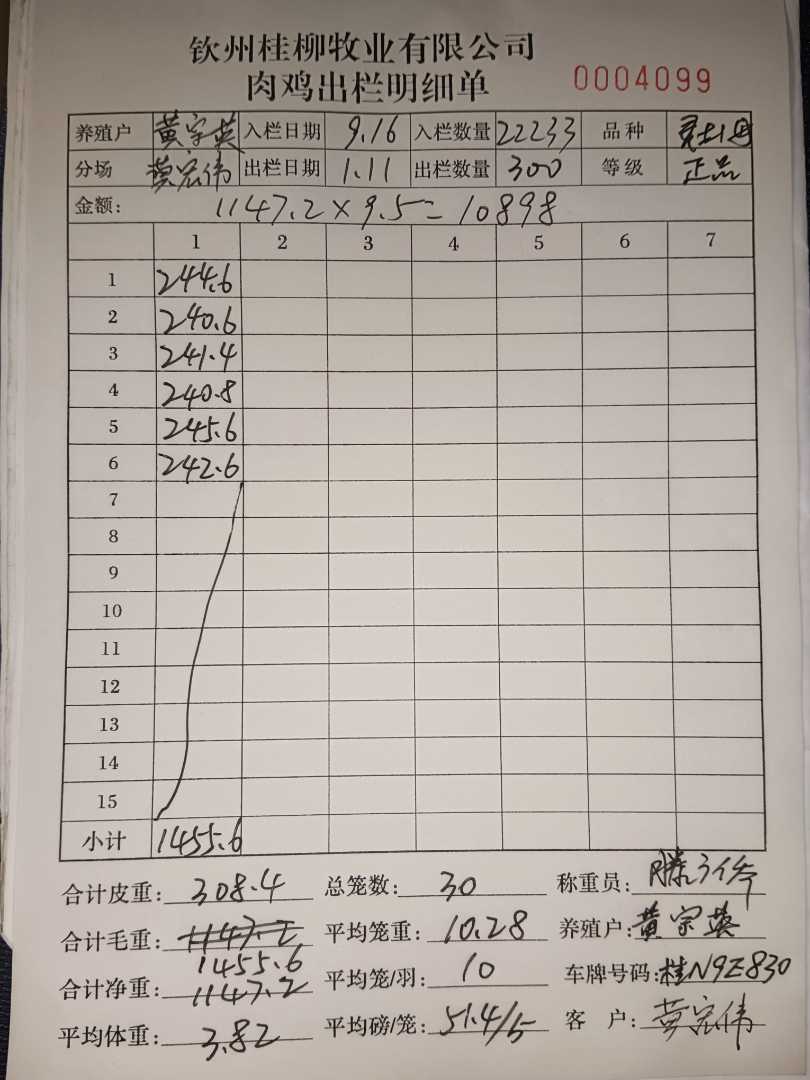 钦州桂柳牧业有限公司
肉鸡出栏明细单 0004099
养殖户 黄宗英 入栏日期 9.16 入栏数量 22233 品种
分场 黄宏伟 出栏日期 1.11 出栏数量 300 等级 正品
金额: 1147.2×9.5=10898
1 2 3 4 5 6 7
1 244.6
2 240.6
3 241.4
4 240.8
5 245.6
6 242.6
7
8
9
10
11
12
13
14
15
小计 1455.6
合计皮重: 308.4 总笼数: 30 称重员:
合计毛重: 1147.2 1455.6 平均笼重: 10.28 养殖户: 黄宗英
合计净重: 1147.2 平均笼/羽: 10 车牌号码: 桂N9Z830
平均体重: 3.82 平均磅/笼: 51.4/5 客 户: 黄宏伟